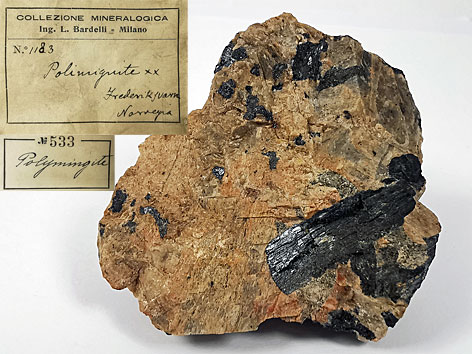 COLLEZIONE MINERALOGICA
Ing. L. Bardelli - Milano
N.º 1183
Polimignite xx
Frederikswarn
Norvegia
№ 533
Polymingite